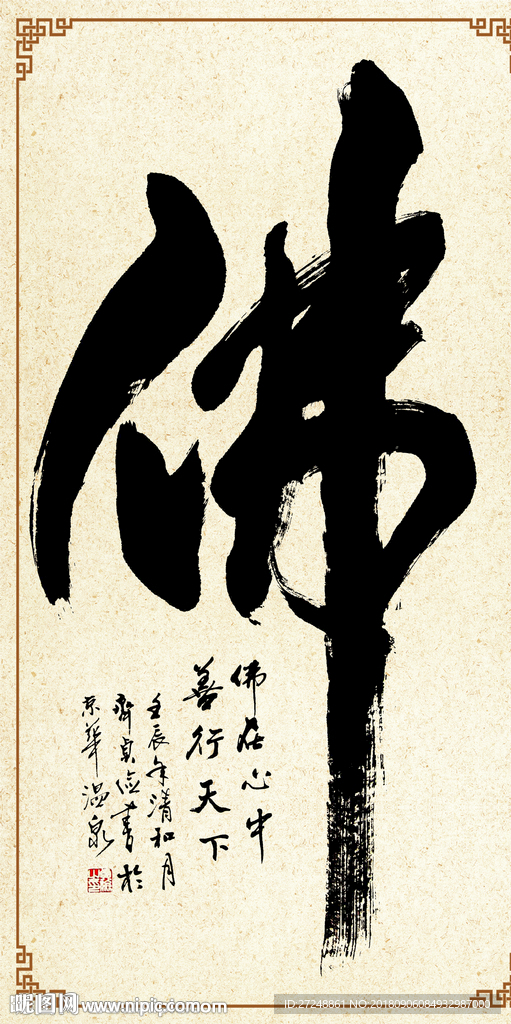 佛
佛在心中
善行天下
壬辰年清和月
齊貞儉書於
京華温泉
昵图网 www.nipic.com
ID:27248861 NO:20180906084932987000